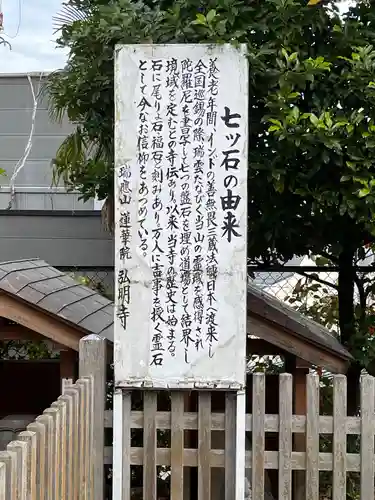 七ッ石の由来
養老年間、インドの善無畏三蔵法師日本へ渡来し
全国巡錫の際、瑞雲たなびく当山の霊気を感得され
陀羅尼を書写して七つの盤石を埋め道場院とし
境域を定めたとの寺伝あり。以来、当寺の歴史は始まる。
石に尾りょ石、福石と刻みあり、万人に吉事を授く霊石
として今なお信仰をあつめている。
瑞應山 蓮華院 弘明寺